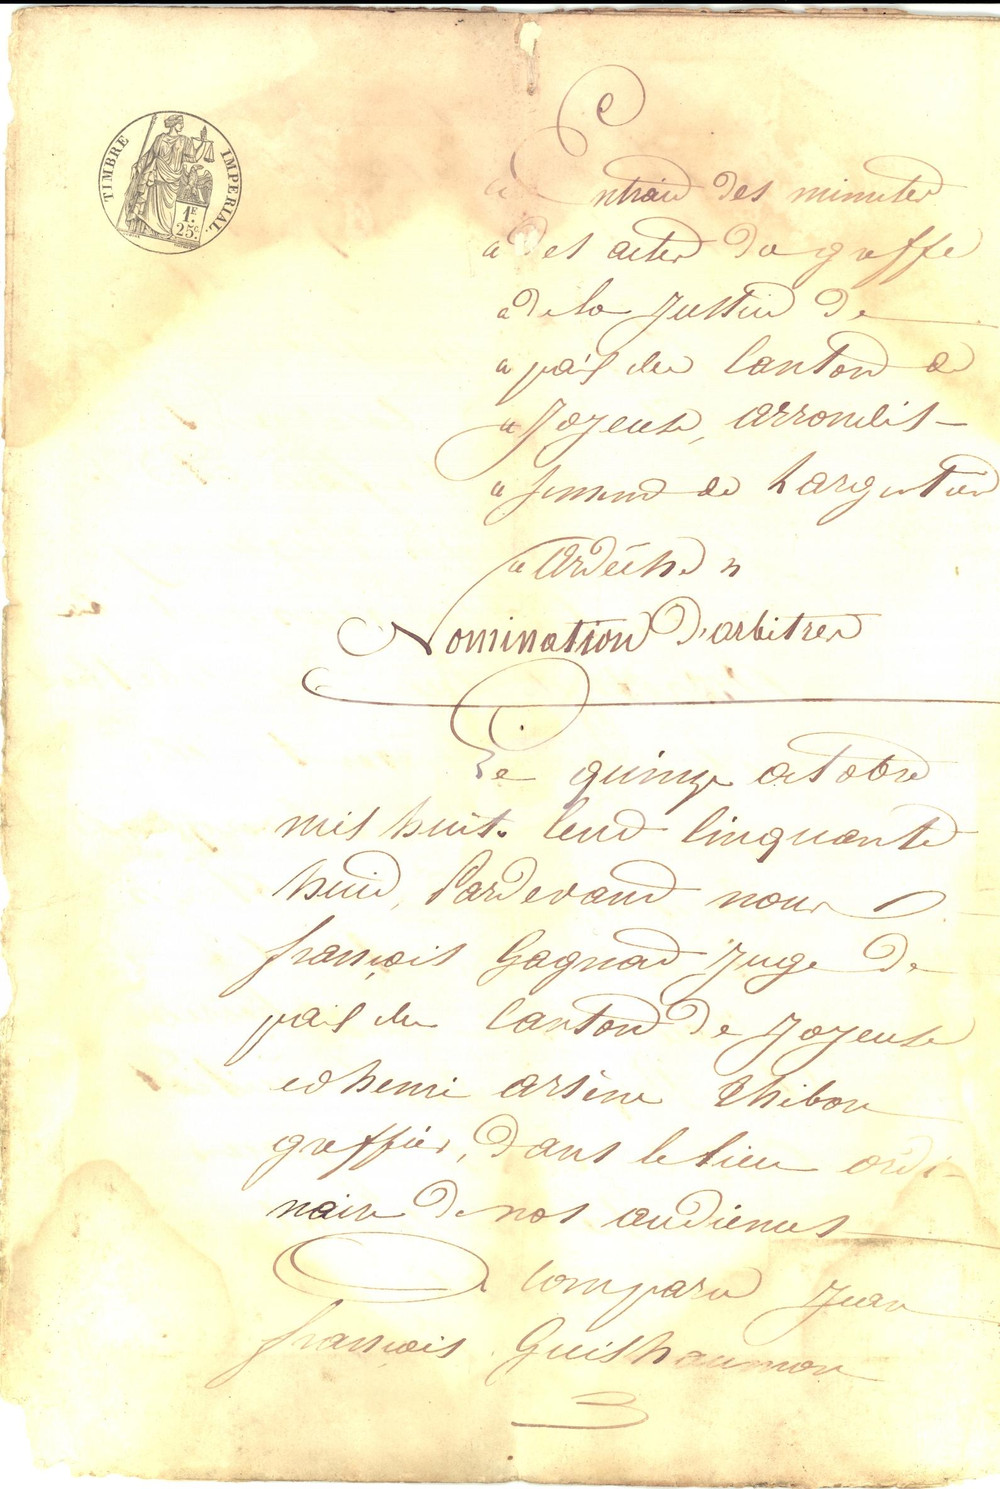 TIMBRE IMPERIAL.
1F.
25c.
Extrait des minutes
« des actes du greffe
« de la Justice de
« paix du Canton de
« Joyeuse, arrondis-
« sement de Largentière
« Ardèche »
Nomination d'arbitres
Le quinze octobre
mil huit Cent Cinquante
huit, Pardevant nous
françois Gagnad Juge de
paix du Canton de Joyeuse
et henri arsène Thibon
greffier, dans le lieu ordi-
naire de nos audiences
A Comparu Jean
françois Guishaumon